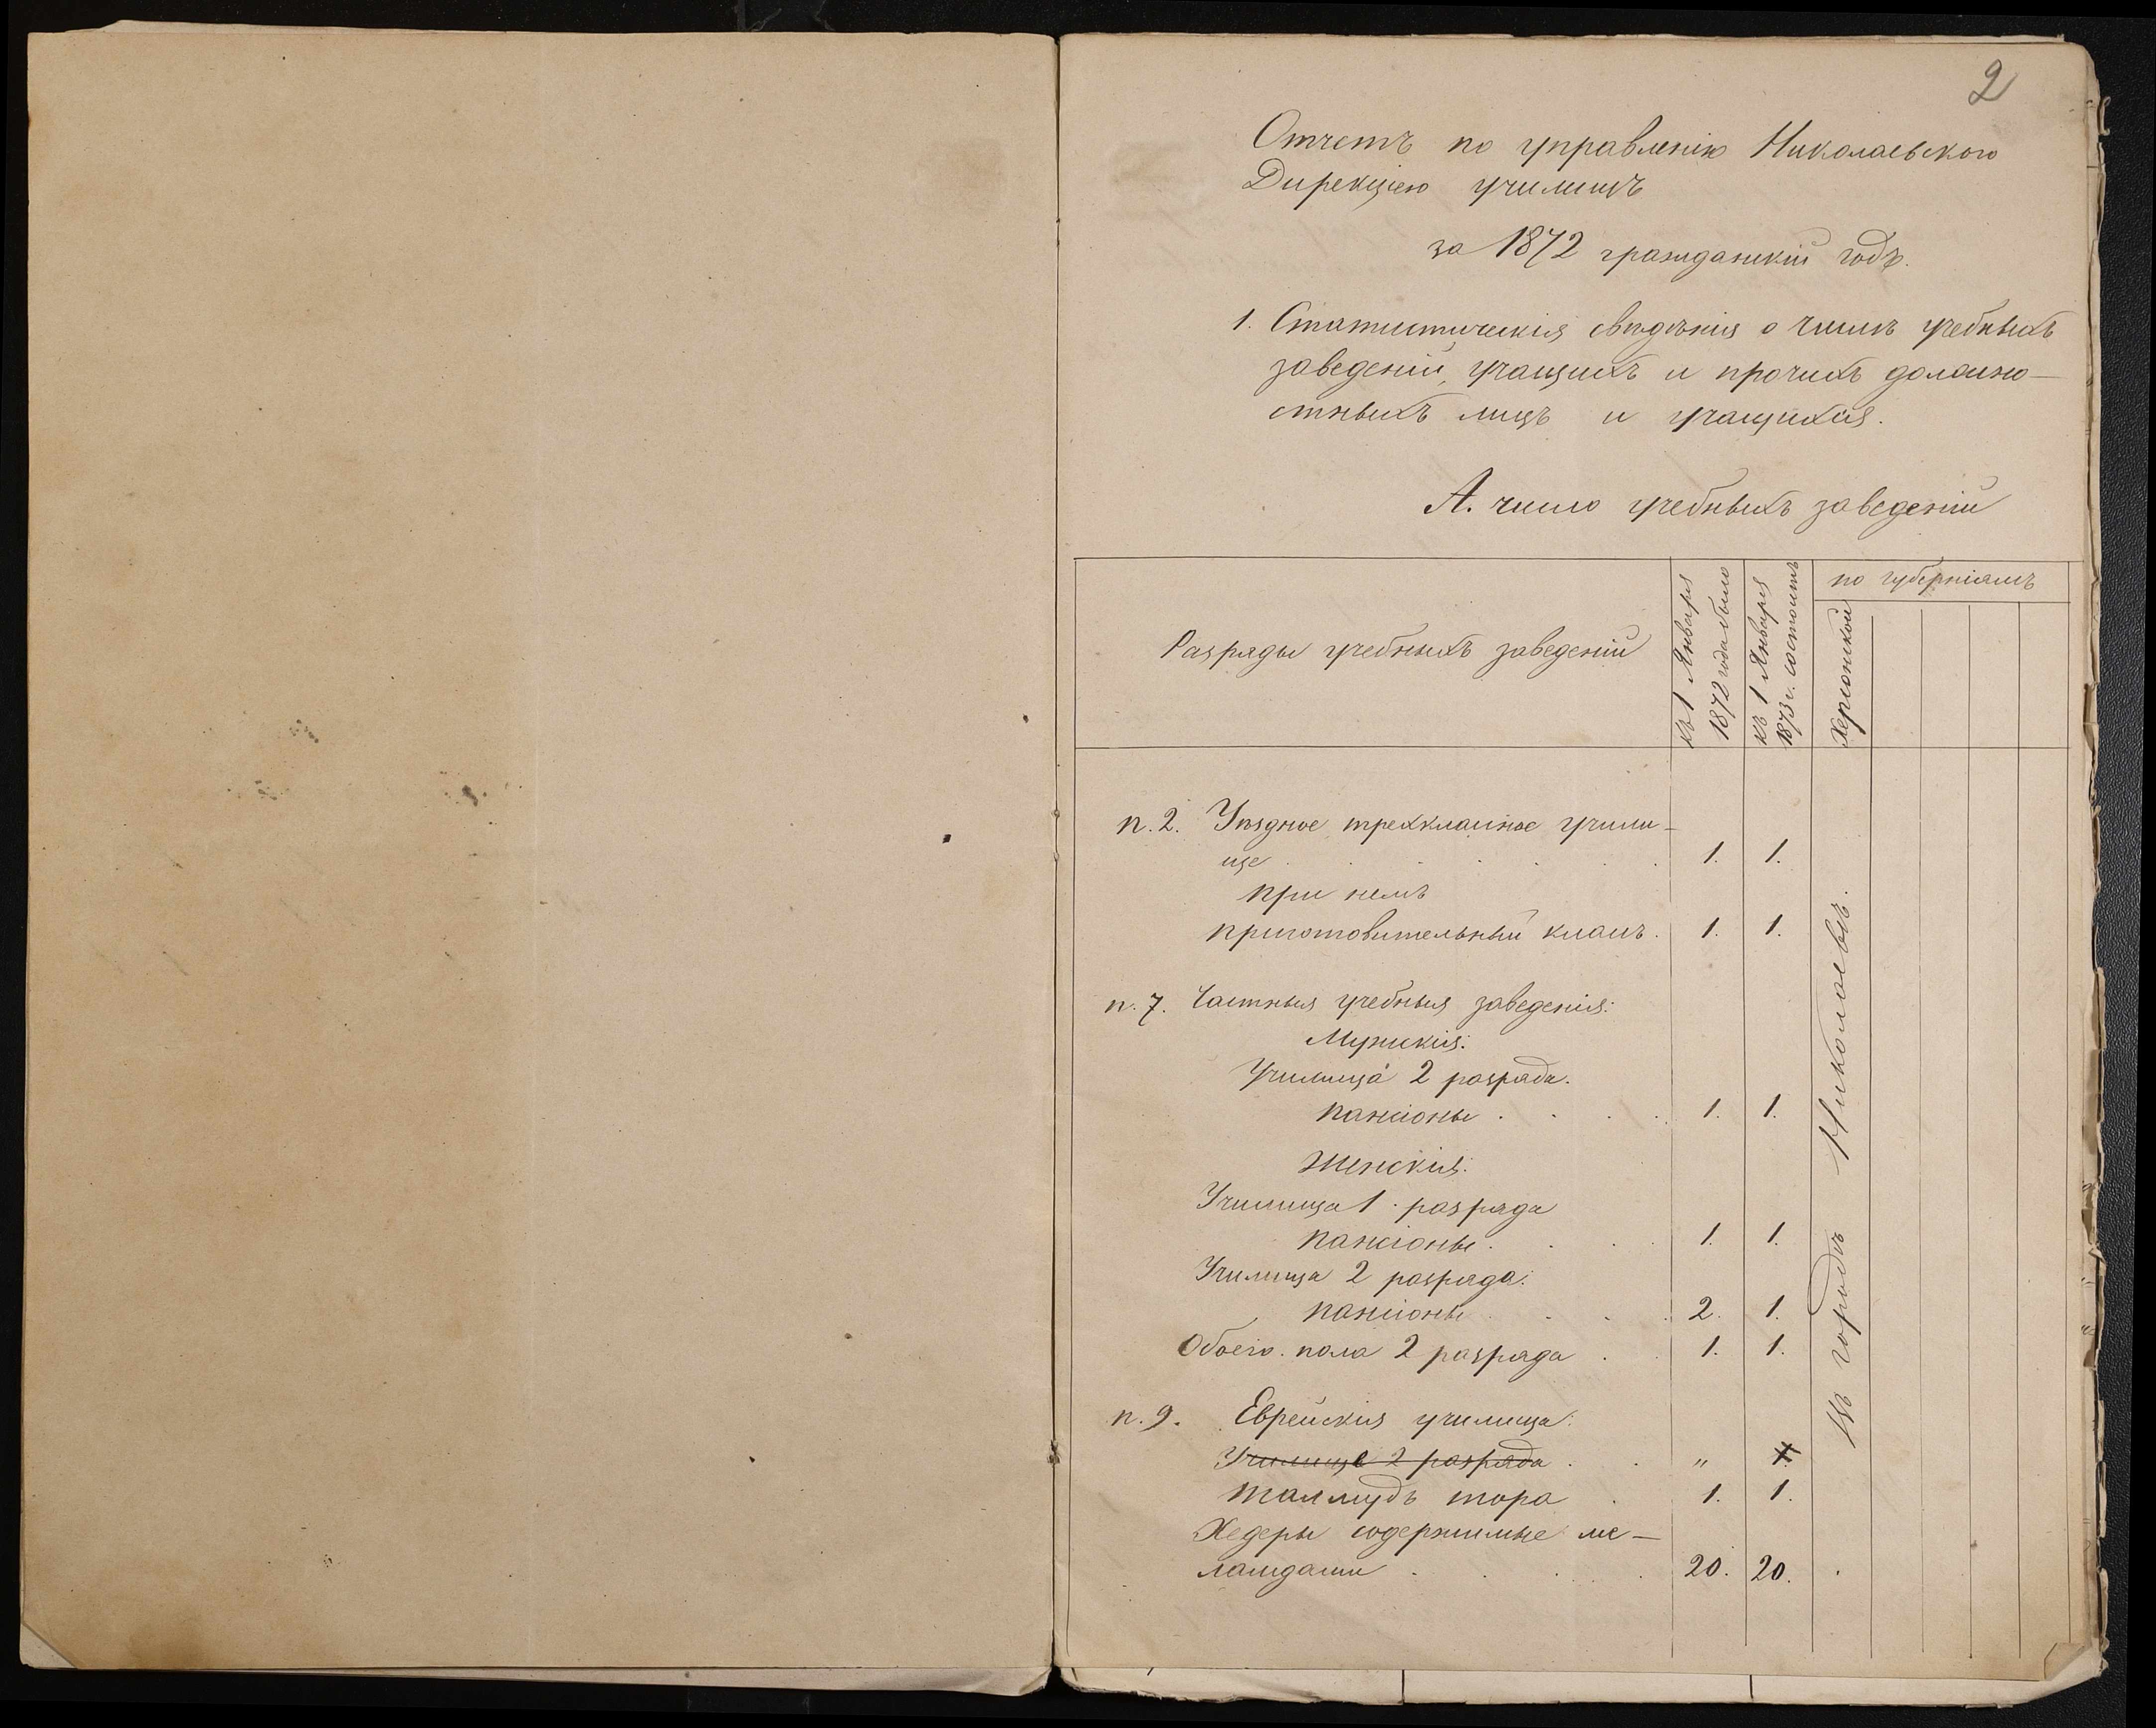 2
Отчетъ по управленію Николаевскою
Дирекціею училищъ
за 1872 гражданскій годъ.
1. Статистическія свѣдѣнія о числѣ учебныхъ
заведеній, учащихъ и прочихъ должно-
стныхъ лицъ и учащихся.
А. число учебныхъ заведеній
Разряды учебныхъ заведеній
къ 1 Января
1872 года было
къ 1 Января
1873 г. состоитъ
по губерніямъ
Херсонской
п. 2. Уѣздное трехклассное учили-
ще . . . . . . 1. 1.
при немъ
приготовительный классъ. 1. 1.
п. 7. Частныя учебныя заведенія:
Мужскія:
Училища 2 разряда.
пансіоны . . . . 1. 1.
Женскія:
Училища 1. разряда
пансіоны . . . 1. 1.
Училища 2 разряда:
пансіоны . . . . 2. 1.
Обоего пола 2 разряда . . 1. 1.
п. 9. Еврейскія училища:
Училище 2 разряда . . „ 1.
Талмудъ тора . 1. 1.
Хедеры содержимые ме-
ламдами . . . . 20. 20.
Въ городѣ Николаевѣ.